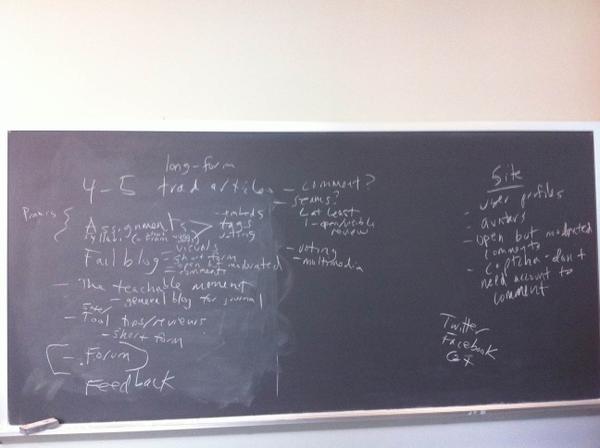 long-form
4-5 trad articles
- comment?
- seams?
at least
1 open/visible
review
- voting
- multimedia
Assignments
syllabi
- embeds
tags
voting
Fail blog
- visuals
- short form
- open but moderated
comments
- The teachable moment
- general blog for journal
- Tool tips/reviews
- short form
- Forum
Feedback
Site
- user profiles
- avatars
- open but moderated
comments
- captcha - don't
need account to
comment
Twitter
Facebook